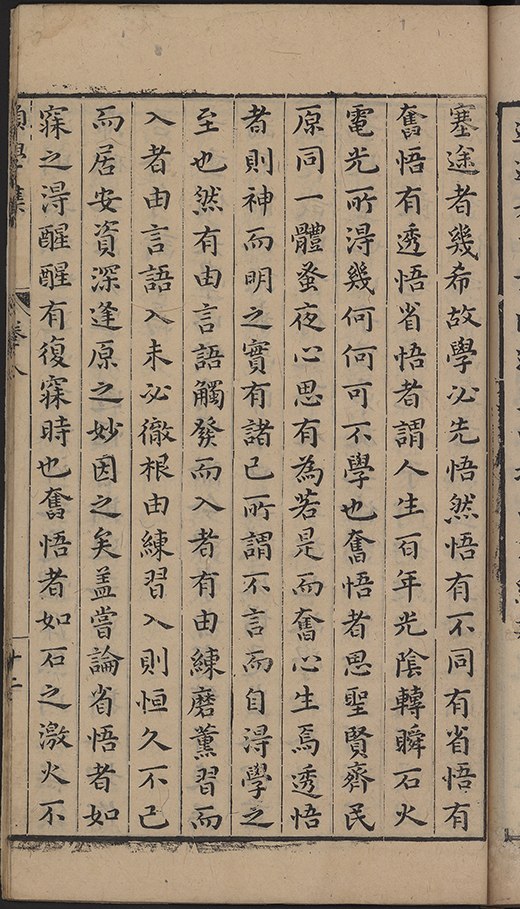 塞途者幾希故學必先悟然悟有不同有省悟有
奮悟有透悟省悟者謂人生百年光陰轉瞬石火
電光所得幾何何可不學也奮悟者思聖賢齊民
原同一體蚤夜心思有為若是而奮心生焉透悟
者則神而明之實有諸己所謂不言而自得學之
至也然有由言語觸發而入者有由練磨薰習而
入者由言語入未必徹根由練習入則恒久不已
而居安資深逢原之妙因之矣盖嘗論省悟者如
寐之得醒醒有復寐時也奮悟者如石之激火不
學集